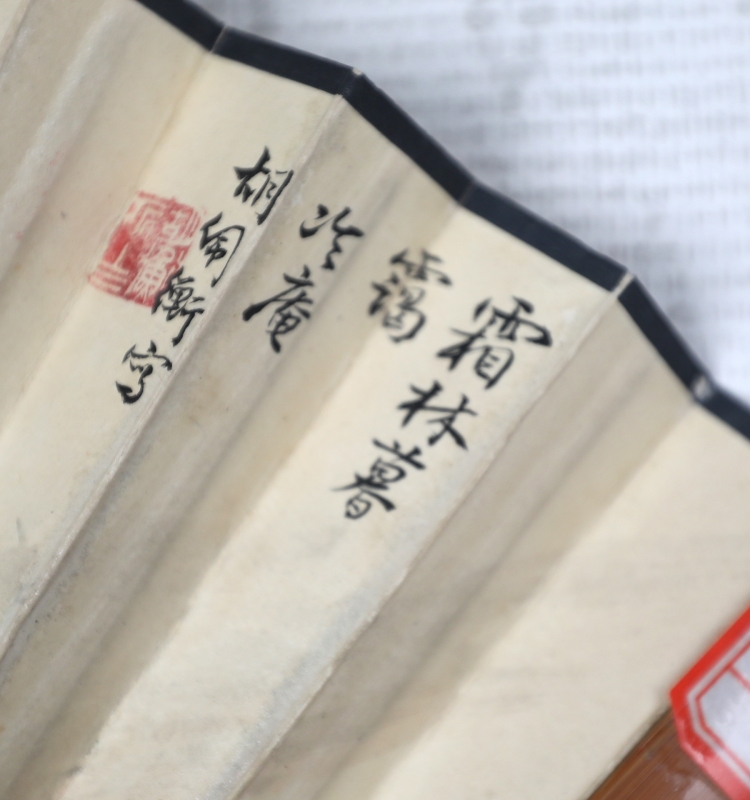 霜林暮
靄
冷庵
胡佩衡写